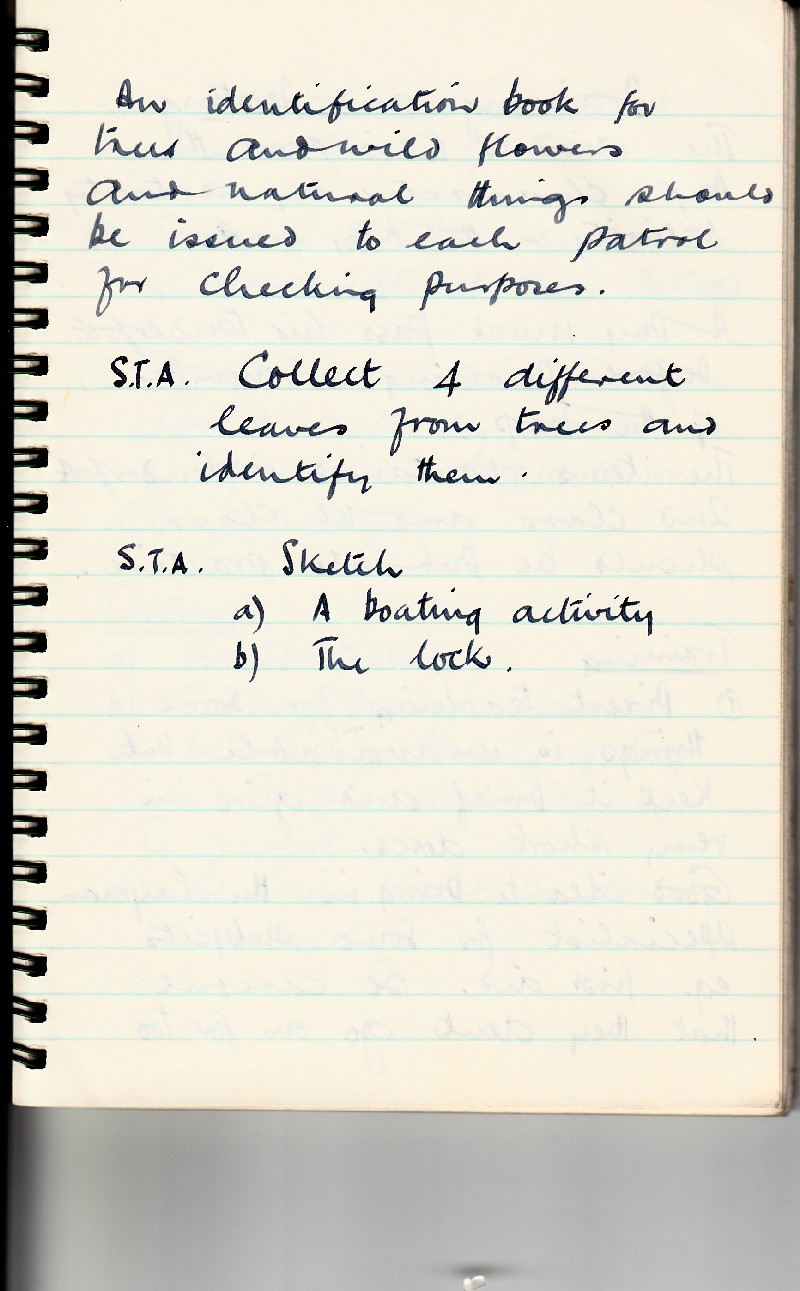 An identification book for
trees and wild flowers
and natural things should
be issued to each patrol
for checking purposes.
S.T.A. Collect 4 different
leaves from trees and
identify them.
S.T.A. Sketch
a) A boating activity
b) The lock.